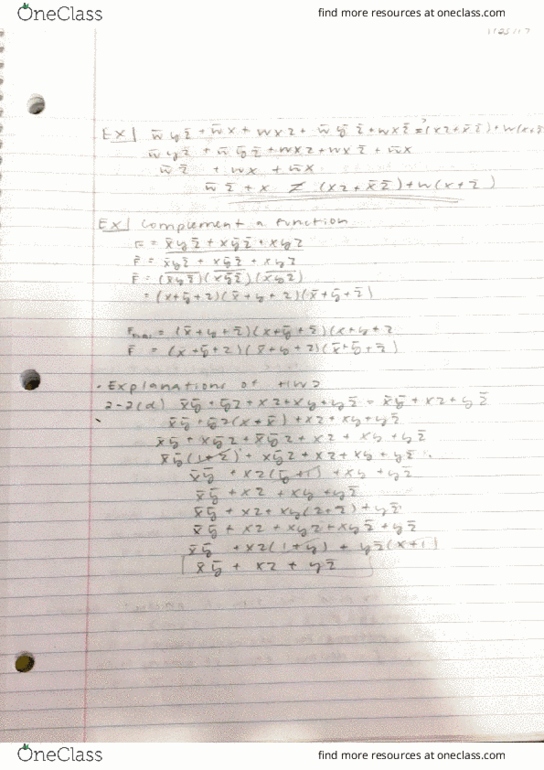 OneClass find more resources at oneclass.com
1/23/17
EX| w̅yz̅ + w̅x + wxz + w̅y̅z̅ + wxz̅ =? (xz + x̅z̅) + w(x+z̅
w̅yz̅ + w̅y̅z̅ + wxz + wxz̅ + w̅x
w̅z̅ + wx + w̅x
w̅z̅ + x ≠ (xz + x̅z̅) + w(x+z̅)
EX| Complement a function
F = x̅yz̅ + xy̅z̅ + xyz
F̅ = x̅yz̅ + xy̅z̅ + xyz
F̅ = (x̅yz̅)(xy̅z̅)(xyz)
= (x+y̅+z)(x̅+y+z)(x̅+y̅+z̅)
= (x̅+y+z̅)(x+y̅+z̅)(x+y+z
F̅ = (x+y̅+z)(x̅+y+z)(x̅+y̅+z̅)
• Explanations of HW2
2-2(d) x̅y̅ + y̅z + xz + xy + yz̅ = x̅y̅ + xz + yz̅
x̅y̅ + y̅z(x+x̅) + xz + xy + yz̅
x̅y̅ + xy̅z + x̅y̅z + xz + xy + yz̅
x̅y̅(1+z) + xy̅z + xz + xy + yz̅
x̅y̅ + xz(y̅+1) + xy + yz̅
x̅y̅ + xz + xy + yz̅
x̅y̅ + xz + xy(z+z̅) + yz̅
x̅y̅ + xz + xyz + xyz̅ + yz̅
x̅y̅ + xz(1+y) + yz̅(x+1)
x̅y̅ + xz + yz̅
OneClass find more resources at oneclass.com